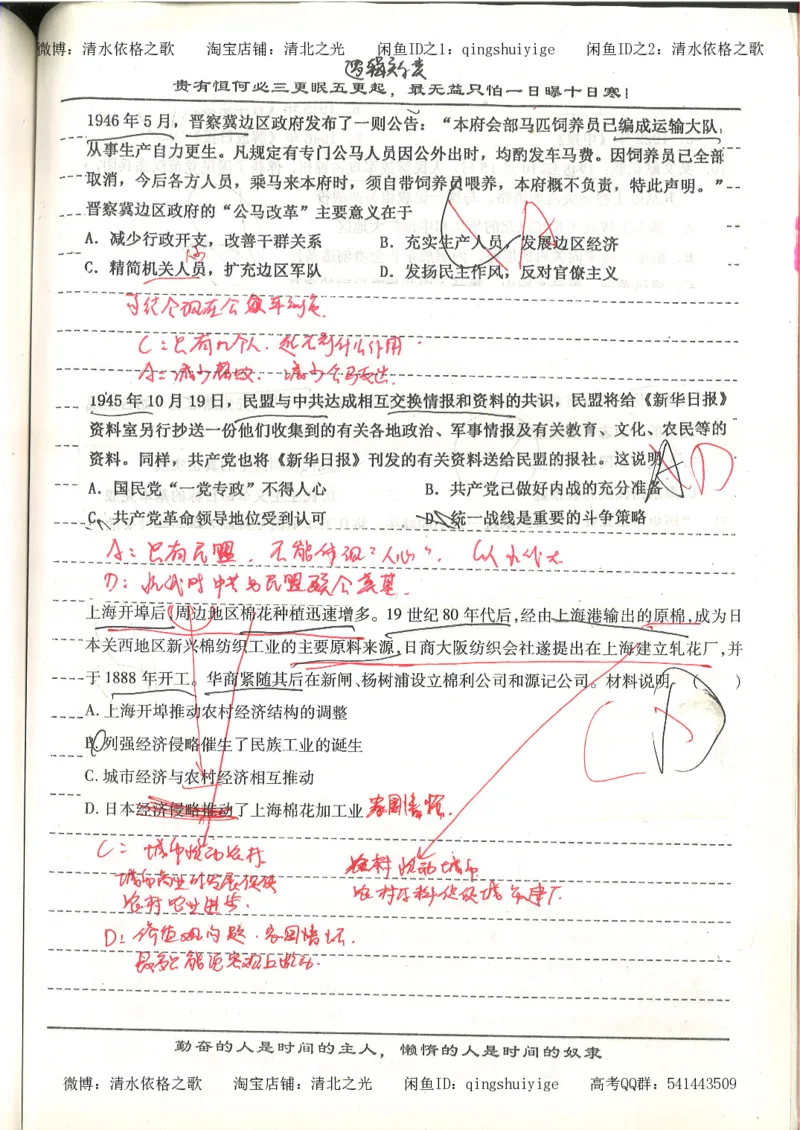 微博：清水依格之歌 淘宝店铺：清北之光 闲鱼ID之1：qingshuiyige 闲鱼ID之2：清水依格之歌
逻辑分类
贵有恒何必三更眠五更起，最无益只怕一日曝十日寒！
1946年5月，晋察冀边区政府发布了一则公告：“本府会部马匹饲养员已编成运输大队，
从事生产自力更生。凡规定有专门公马人员因公外出时，均酌发车马费。因饲养员已全部
取消，今后各方人员，乘马来本府时，须自带饲养员喂养，本府概不负责，特此声明。”
晋察冀边区政府的“公马改革”主要意义在于
A
A．减少行政开支，改善干群关系 B．充实生产人员，发展边区经济
C．精简机关人员，扩充边区军队 D．发扬民主作风，反对官僚主义
C：只有几个人，起不到什么作用
1945年10月19日，民盟与中共达成相互交换情报和资料的共识，民盟将给《新华日报》
资料室另行抄送一份他们收集到的有关各地政治、军事情报及有关教育、文化、农民等的
资料。同样，共产党也将《新华日报》刊发的有关资料送给民盟的报社。这说明
A D
A．国民党“一党专政”不得人心 B．共产党已做好内战的充分准备
C．共产党革命领导地位受到认可 D．统一战线是重要的斗争策略
A：只有民盟，不能体现“人心”，以小代大
D：抗战时中共与民盟联合
上海开埠后，周边地区棉花种植迅速增多。19世纪80年代后，经由上海港输出的原棉，成为日
本关西地区新兴棉纺织工业的主要原料来源，日商大阪纺织会社遂提出在上海建立轧花厂，并
于1888年开工。华商紧随其后在新闸、杨树浦设立棉利公司和源记公司。材料说明 （ ）
C D
A.上海开埠推动农村经济结构的调整
B.列强经济侵略催生了民族工业的诞生
C.城市经济与农村经济相互推动
D.日本经济侵略推动了上海棉花加工业 家国情怀
C：城市推动农村 农村推动城市
城市商业的发展促使
农村农业进步.
D：价值观问题.家国情怀.
勤奋的人是时间的主人，懒惰的人是时间的奴隶
微博：清水依格之歌 淘宝店铺：清北之光 闲鱼ID：qingshuiyige 高考QQ群：541443509